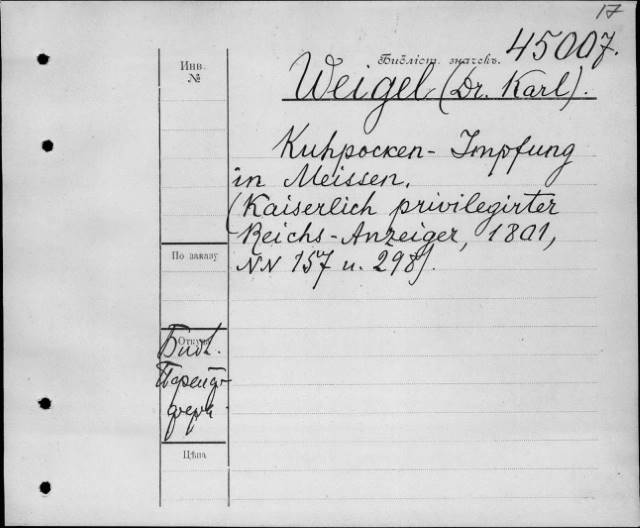 17
Библіот. значекъ. 45007.
Инв.
№
Weigel (Dr. Karl).
Kuhpocken - Impfung
in Meissen.
(Kaiserlich privilegirter
Reichs-Anzeiger, 1801,
NN 157 u. 298).
По заказу
Откуда
Библ.
Цѣна